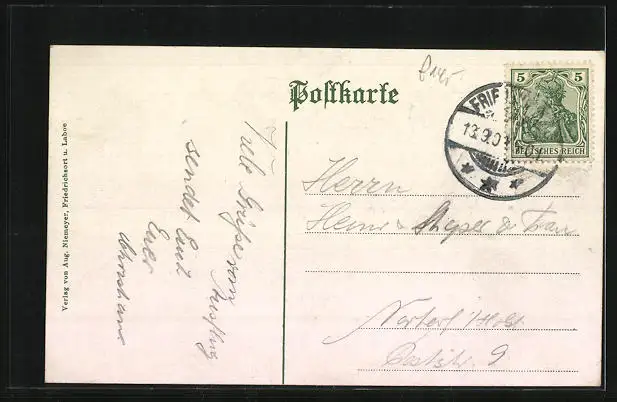 Postkarte
5 5
DEUTSCHES REICH
FRIE
13.9.0
Verlag von Aug. Niemeyer, Friedrichsort u. Laboe
Viele Grüße vom
Ausflug
sendet Euch
Euer
Herrn
Heinr. & Frau
Nortorf i/Holst
9